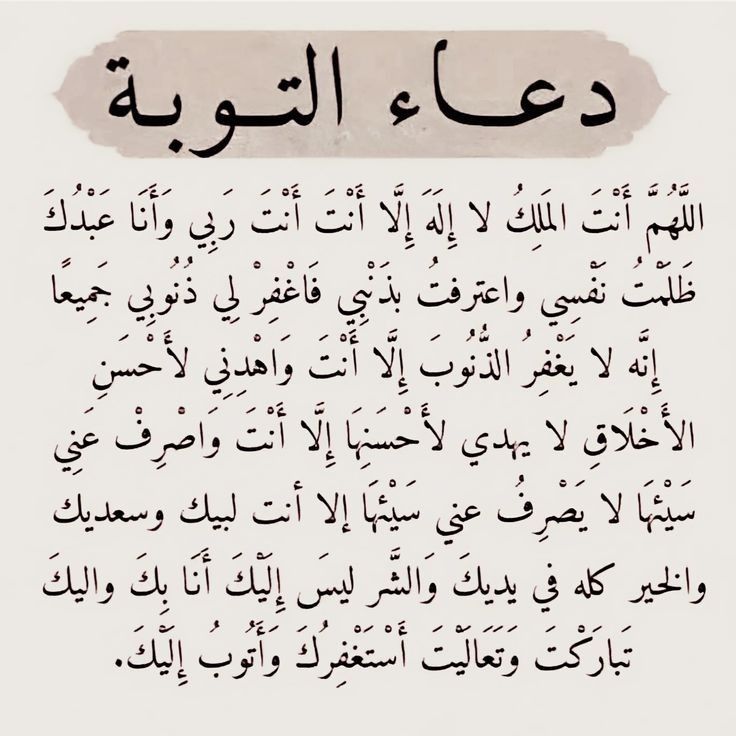 دعاء التوبة
اللَّهُمَّ أَنْتَ المَلِكُ لا إِلَهَ إِلَّا أَنْتَ أَنْتَ رَبِي وَأَنَا عَبْدُكَ
ظَلَمْتُ نَفْسِي واعترفتُ بذَنْبِي فَاغْفِرْ لِي ذُنُوبِي جَمِيعًا
إِنَّه لا يَغْفِرُ الذُّنُوبَ إِلَّا أَنْتَ وَاهْدِنِي لأَحْسَنِ
الأَخْلَاقِ لا يهدي لأَحْسَنِهَا إِلَّا أَنْتَ وَاصْرِفْ عَنِي
سَيْئهَا لا يَصْرِفُ عني سَيْئهَا إلا أنت لبيك وسعديك
والخير كله في يديكَ وَالشَّر ليسَ إِلَيْكَ أَنَا بِكَ واليكَ
تَبارَكْتَ وَتَعَالَيْتَ أَسْتَغْفِرُكَ وَأَتُوبُ إِلَيْكَ.